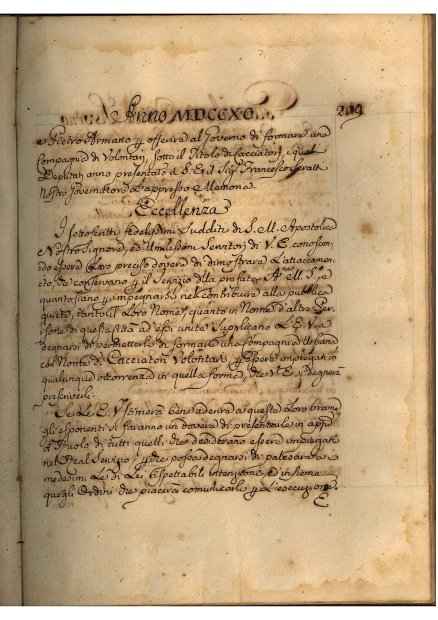 Anno MDCCXC. 209
Pietro Armano p offerirsi al Governo di formare una
Compagnia di Volontarj sotto il Titolo di Cacciatori, i quali
Deputati anno presentato a S. E. il Sigr Francesco Seratti
Nostro Governatore l'appresso Memoria.
Eccellenza
I sottoscritti fedelissimi Sudditi di S. M. Apostolica
Nostro Signore, ed Umilissimi Servitori di V. E. conoscen
do essere loro preciso dovere di dimostrare l'attaccamen
to, che conservano p il Servizio della prefata M. S. e
quanto siano p impegnarsi nel contribuire alla pubblica
quiete, tanto il Loro Nome, quanto in Nome d'altre Per
sone di questa Città ad essi unite Supplicano L'E. V. a
degnarsi di permetterle di formare una Compagnia Urbana
col Nome di Cacciatori Volontarj p essere impiegati in
qualunque occorrenza in quella forma, che V. E. si degnerà
prescriverli.
Se L'E. V. stimerà bene aderire a queste Loro brame
gli esponenti si faranno un dovere di presentarle in appo
il Ruolo di tutti quelli che desiderano essere impiegati
nel Real Servizio, p che possa degnarsi di palesare a
medesimi Le di Lei rispettabili intenzioni, ed insieme
quegli Ordini che piacerà comunicarli p L'esecuzione.